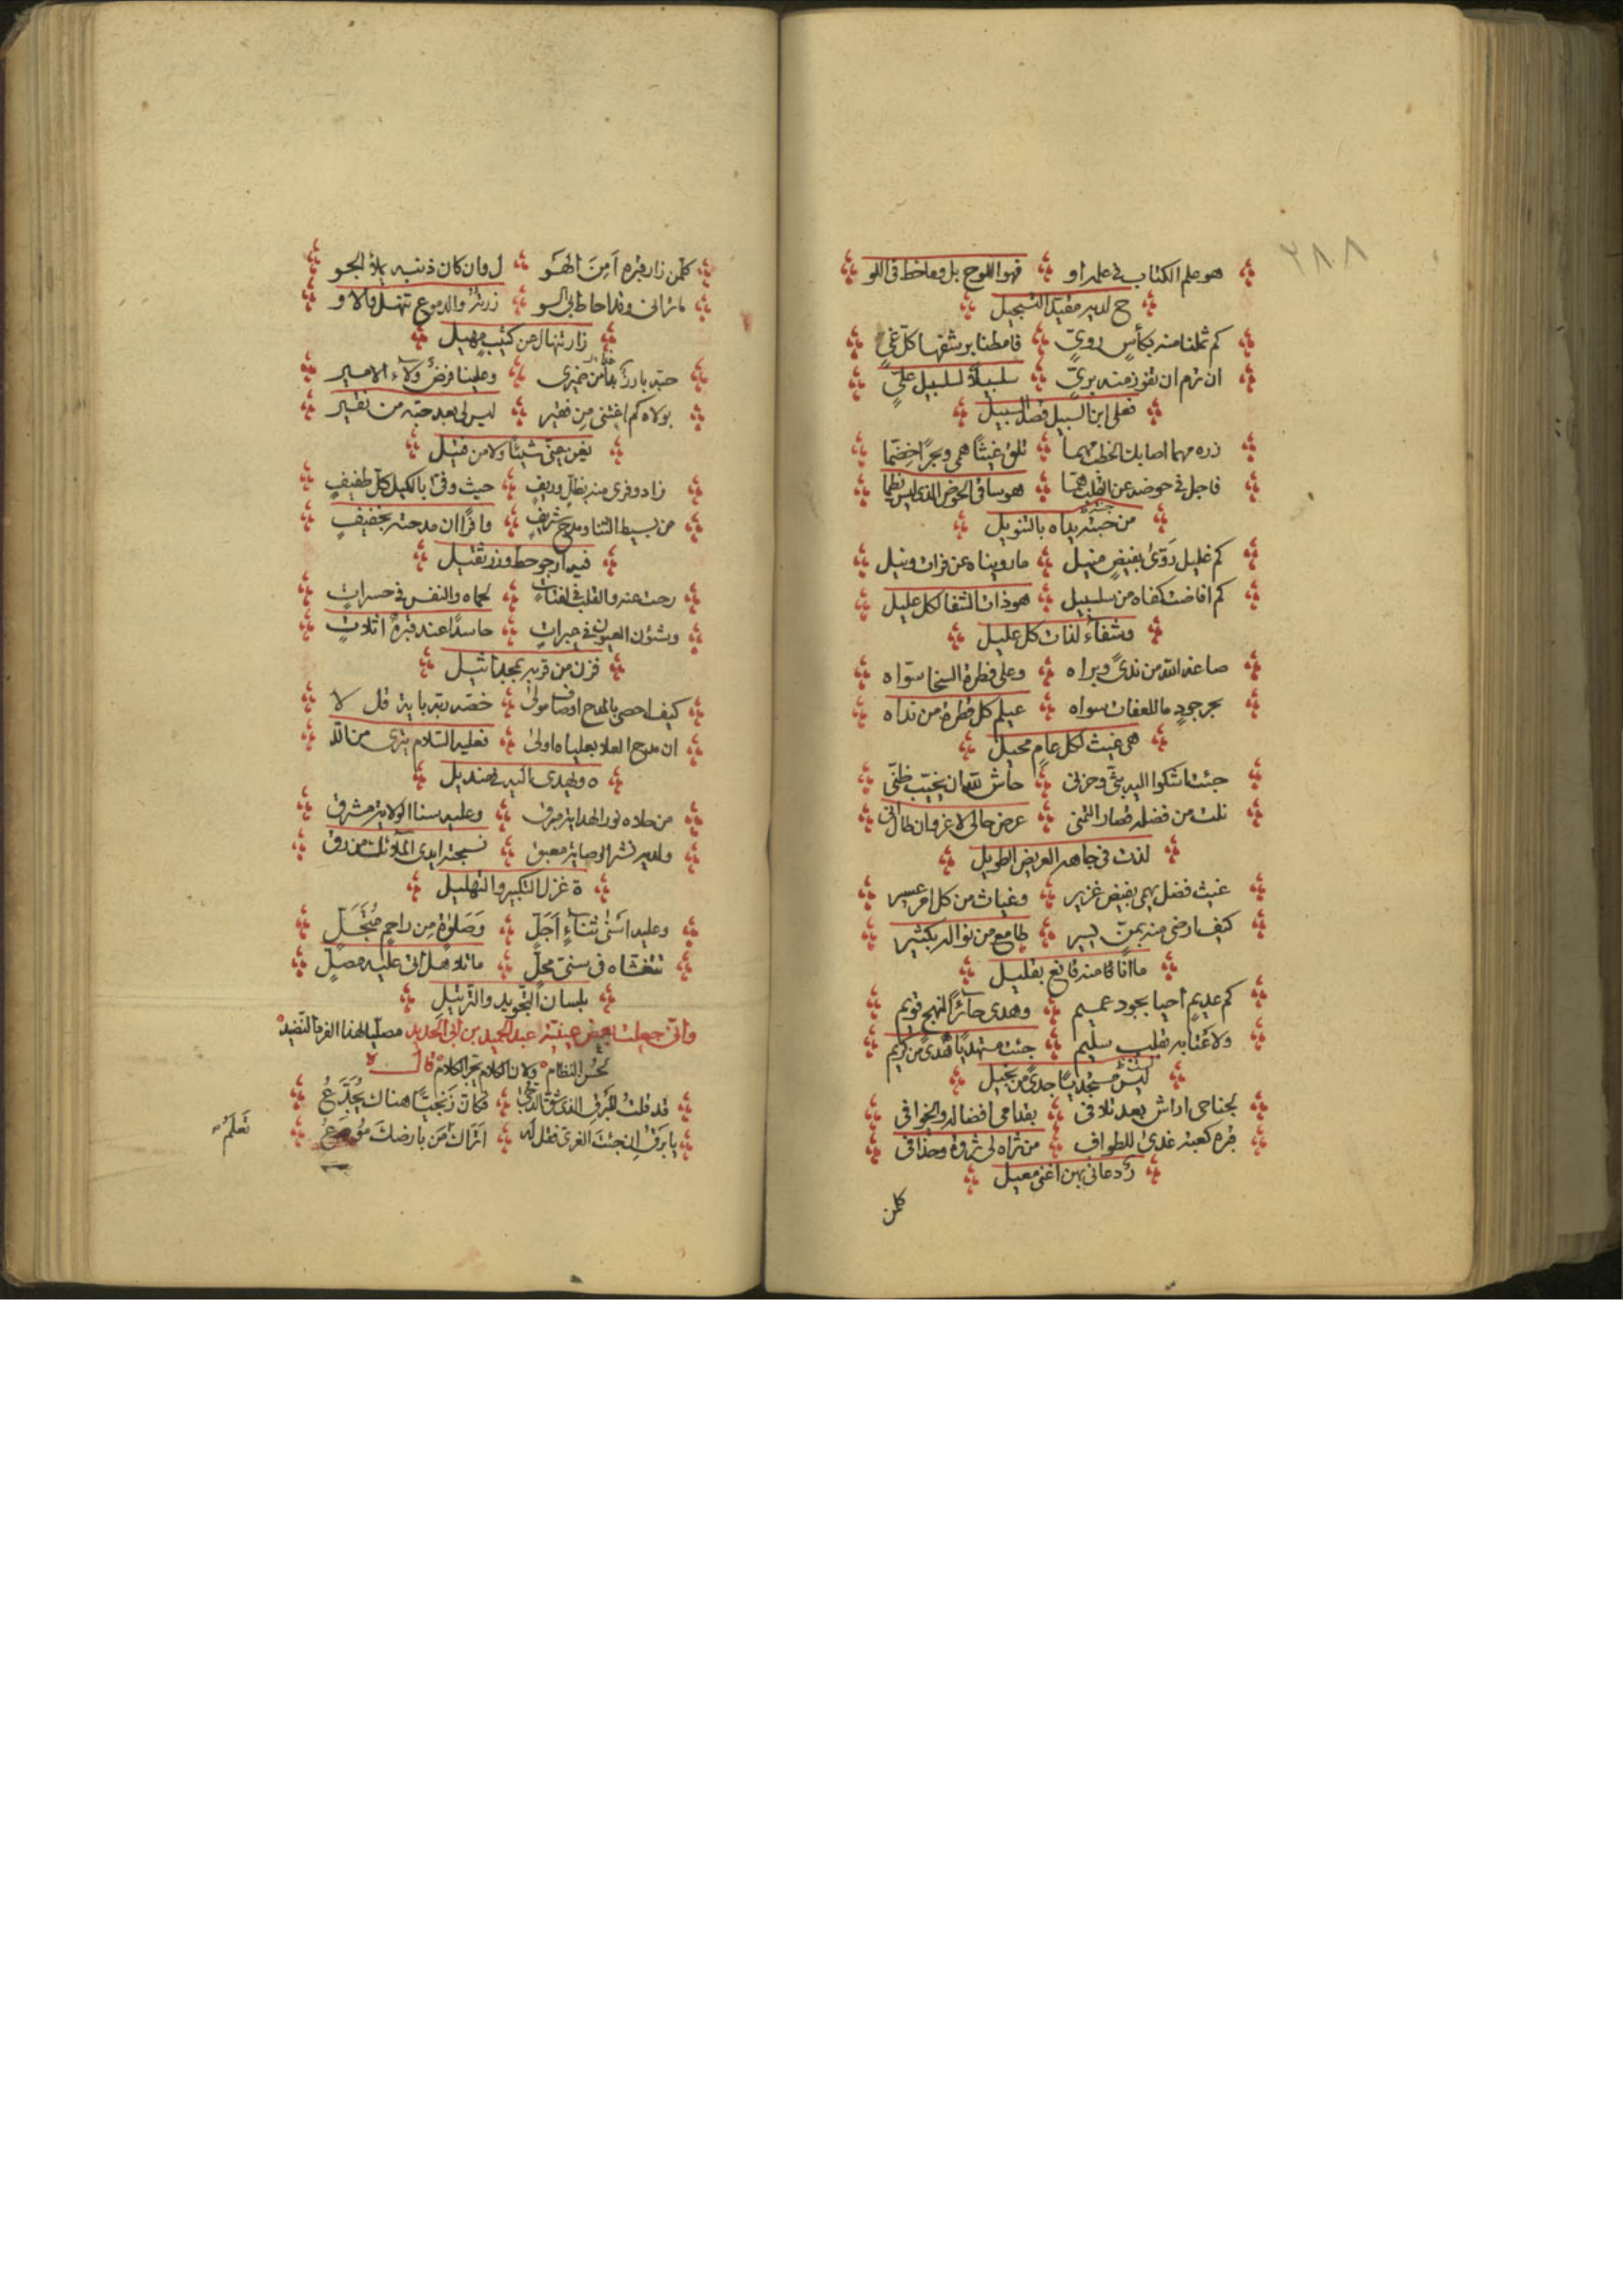 ٢٨٨
هو علم الكتاب في علمه او فهو اللوح بل وما خط في اللو
ح لديه مقيد التسجيل
كم ثملنا منه بكأسٍ رويٍّ فامطنا برشفها كل غيٍّ
ان ترم ان تفوز منه بريٍّ سلسبيلاً لسلسبيل عليٍّ
فعلى ابن السبيل قصد السبيل
زره مهما اصابك الخطب مهما تلق غيثًا همى وبحرًا خضمّا
فاجل في حوضه عن القلب همّا هو ساقي الحوض الذي ليس يظما
من حبته يداه بالتنويل
كم غليل روّى بفيضٍ منيل ما رويناه عن فرات ونيل
كم افاضت كفاه من سلسبيل هو ذات الشفا لكل عليل
وشفاءٌ لذات كل عليل
صاغه الله من ندىً وبراه وعلى فطرة السخا سوّاه
بحر جودٍ ما للعفات سواه عيلم كل قطرة من نداه
هي غيث لكل عامٍ محيل
جئت اشكوا اليه بثّي وحزني حاش لله ان يخيّب ظنّي
نلت من فضله قصار التمني عرض حالي لا غرو ان طال اني
لذت في جاهه العريض الطويل
غيث فضل يهمي بفيض غزير وغياث من كل امر عسير
كيف ارضى منه بمنٍّ يسير طامع من نواله بكثير
ما انا قا منه قانع بقليل
كم عديمٍ احيا بجود عميم وهدى حائرًا لنهج قويم
ولاعتابه بقلب سليم جئت مستهديًا هدىً من كريم
ليس مستجديًا جدىً من بخيل
لجناحي اراش بعد تلافي بقدامى افضاله والخوافي
قبره كعبة غدى للطواف من ثراه لي ثروة وحذافي
رُدعاني بهن اغنى معيل
كلمن
كلمن زار قبره اَمِنَ الهَو ل وان كان ذنبه يملأ الجو
ما تراني وقد احاط بي السو زرته والدموع تنهل كالاو
زار تنهال من كثيب مهيل
حبّه بارز بدا من ضميري وعلينا فرضٌ ولاء الامير
بولاه كم اغتنى من فقير ليس لي بعد حبّه من نقير
يغن يعني شيئًا ولا من فتيل
زاد وفري منه بظلٍّ وريفٍ حيث وفى بالكيل كل طفيفٍ
من بسيط الثنا ومدح شريفٍ وافرًا ان مدحته بخفيفٍ
فيه ارجو حط وزر ثقيل
رحت عنه والقلب في لفتات لحماه والنفس في حسراتٍ
وشئون العيون في عبراتٍ حاسدًا عند قبره اثلاثٍ
فزن من قربه بمجد اثيل
كيف احصي بالمدح اوصاف مولىً خصّه ربّه باية قل لا
ان مدح العلا بعلياه اولى فعليه السلام يترى من الله
ه ويهدى اليه في منديل
من حلاه نور الهداية مبرق وعليه سنا الولاية مشرق
ولديه نشر الوصاية معبق نسجته ايدي الملائك من رق
ة غزل التكبير والتهليل
وعليه اَسْنى ثناءٍ اَجَلّ وَصَلوٰة مِن راحمٍ مُتَجَلّ
تتغشاه في سنىً محلّ ما تلا هل اتى عليه مصلّ
بلسان التجويد والترتيل
واني جعلت بعض عينية عبد الحميد بن ابي الحديد مصليا لهذا الفريد النضيد
لحسن النظام ولان الكلام يجر الكلام قال
قد قلت للبرق الذي شق الدجى فكان زنجيّا هناك يُجَدَّعُ
يا برق ان جئت الغري فقل له اتراك تعلم من بارضك مُودَعُ
تَعلَمُ